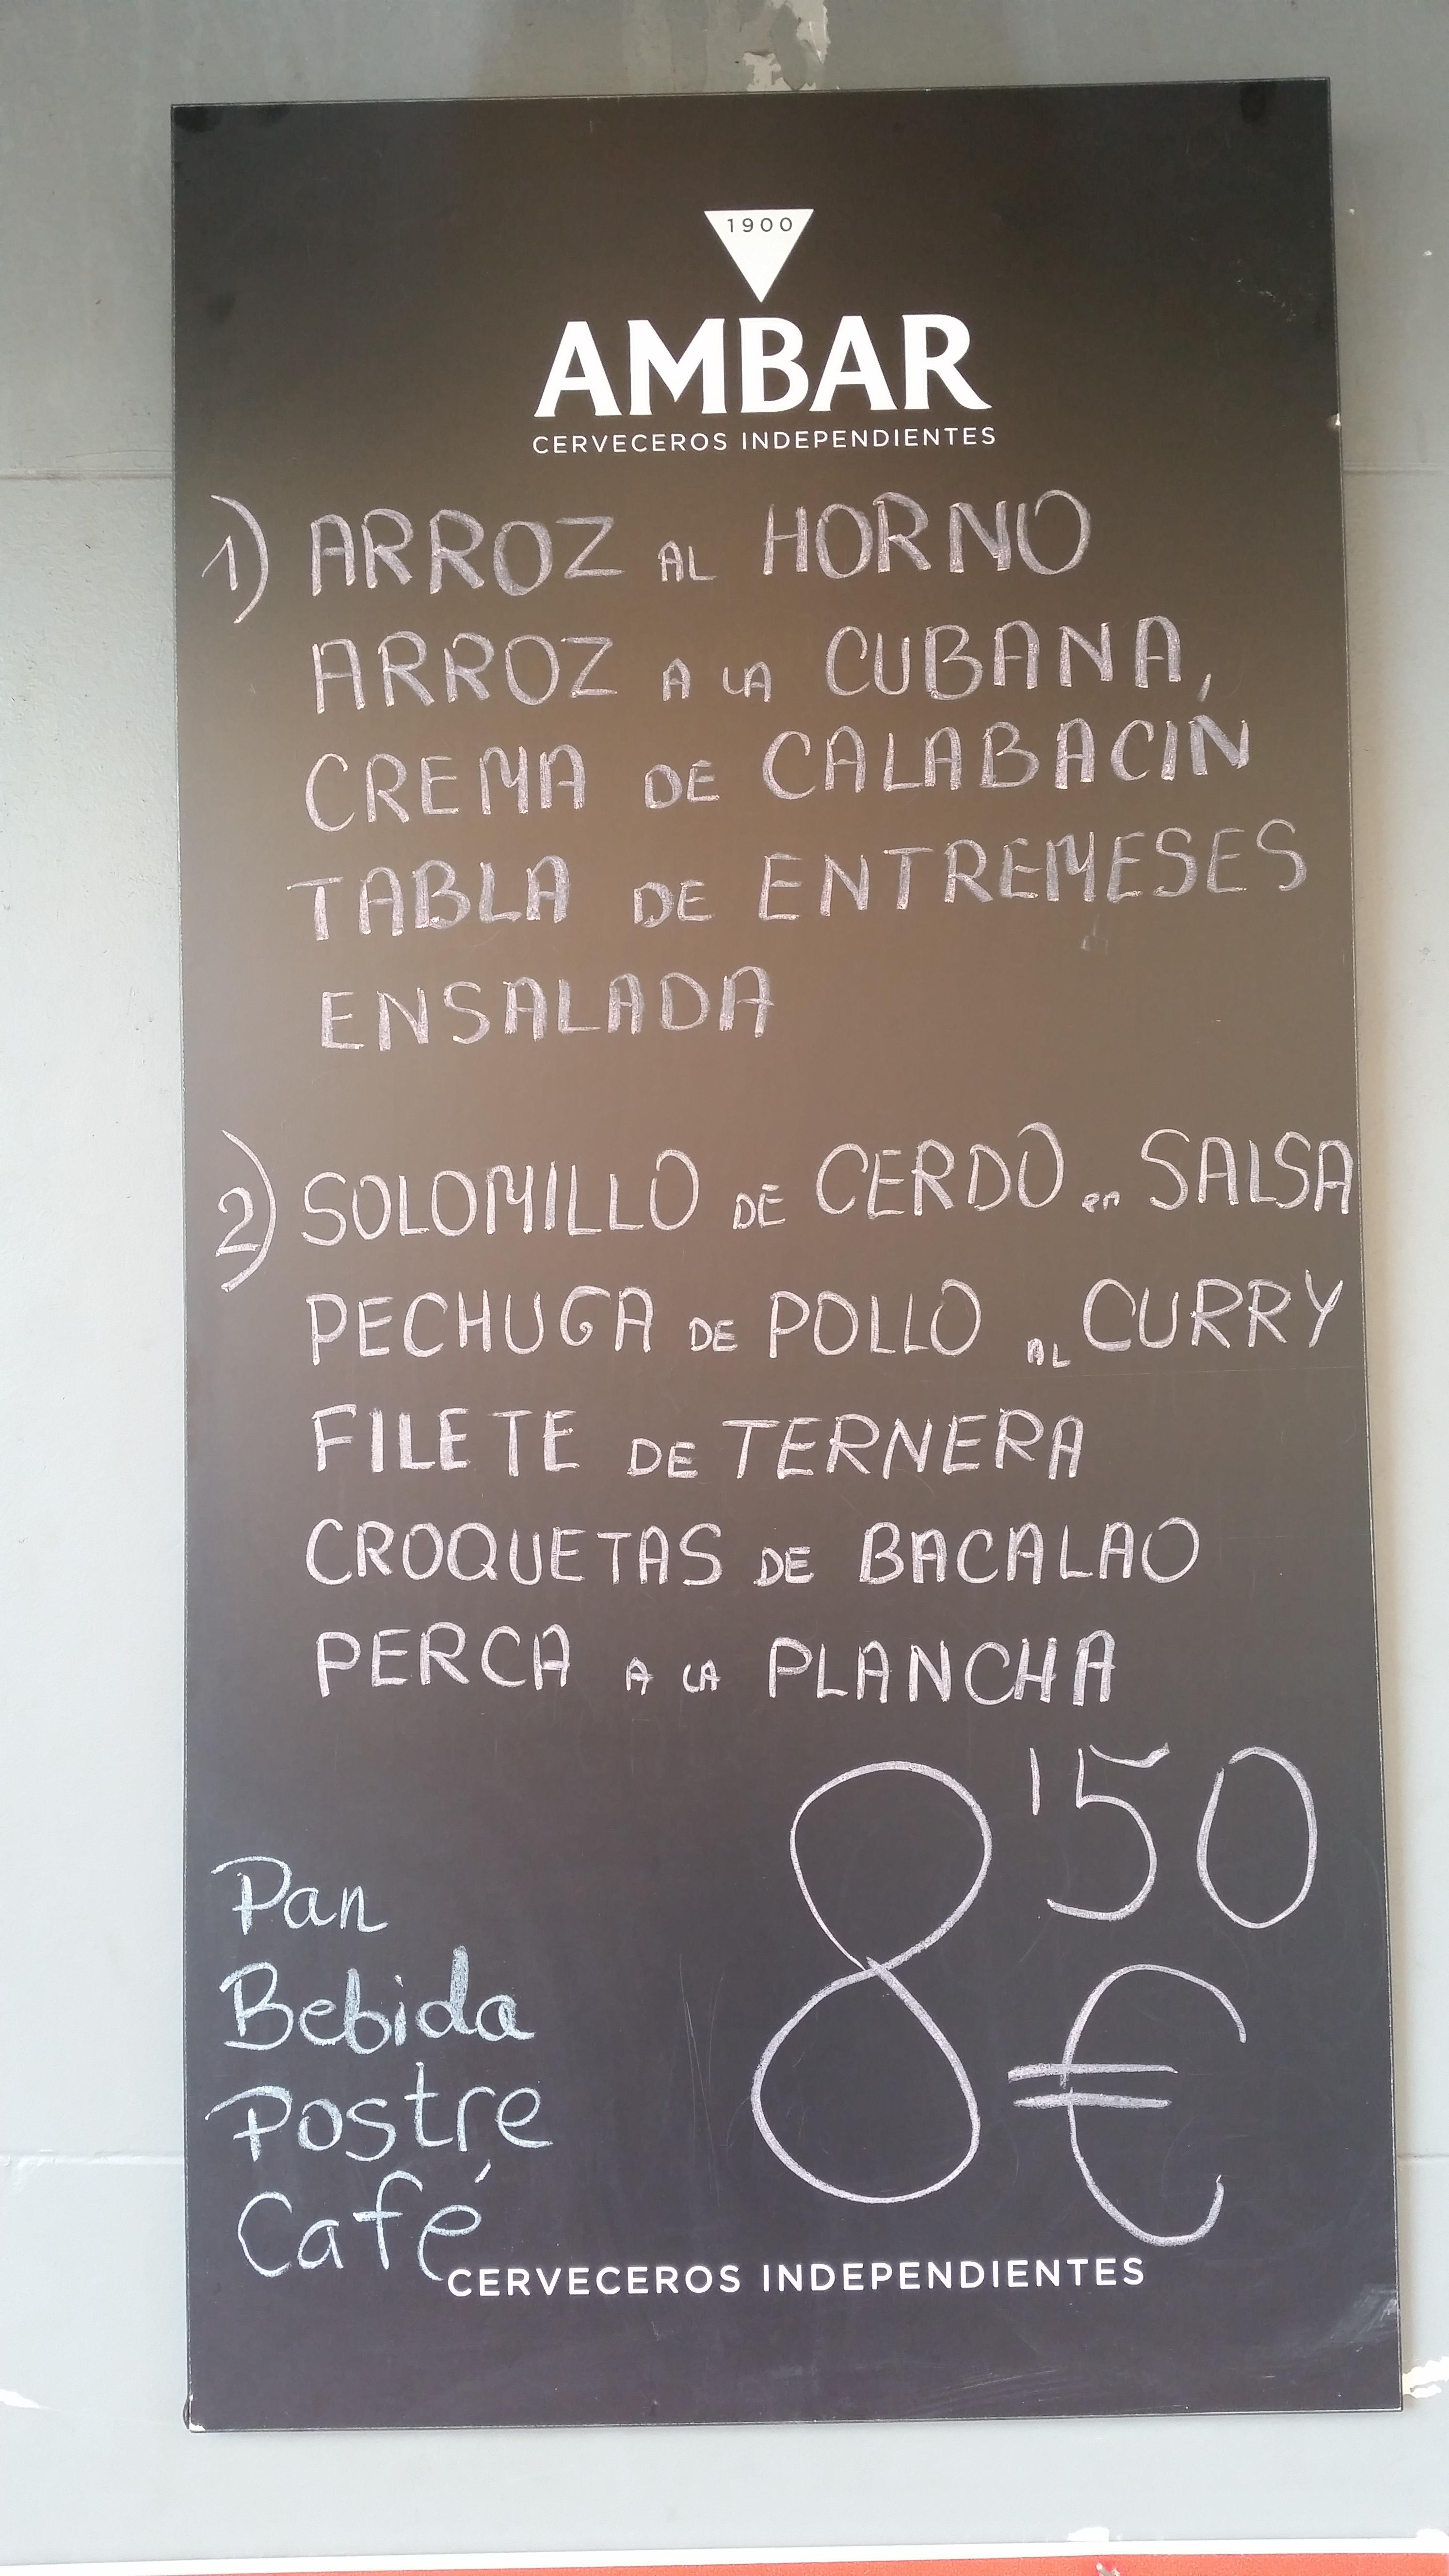 1900
AMBAR
CERVECEROS INDEPENDIENTES
1) ARROZ AL HORNO
ARROZ A LA CUBANA
CREMA DE CALABACÍN
TABLA DE ENTREMESES
ENSALADA
2) SOLOMILLO DE CERDO en SALSA
PECHUGA DE POLLO AL CURRY
FILETE DE TERNERA
CROQUETAS DE BACALAO
PERCA A LA PLANCHA
8'50 €
Pan
Bebida
Postre
Café
CERVECEROS INDEPENDIENTES